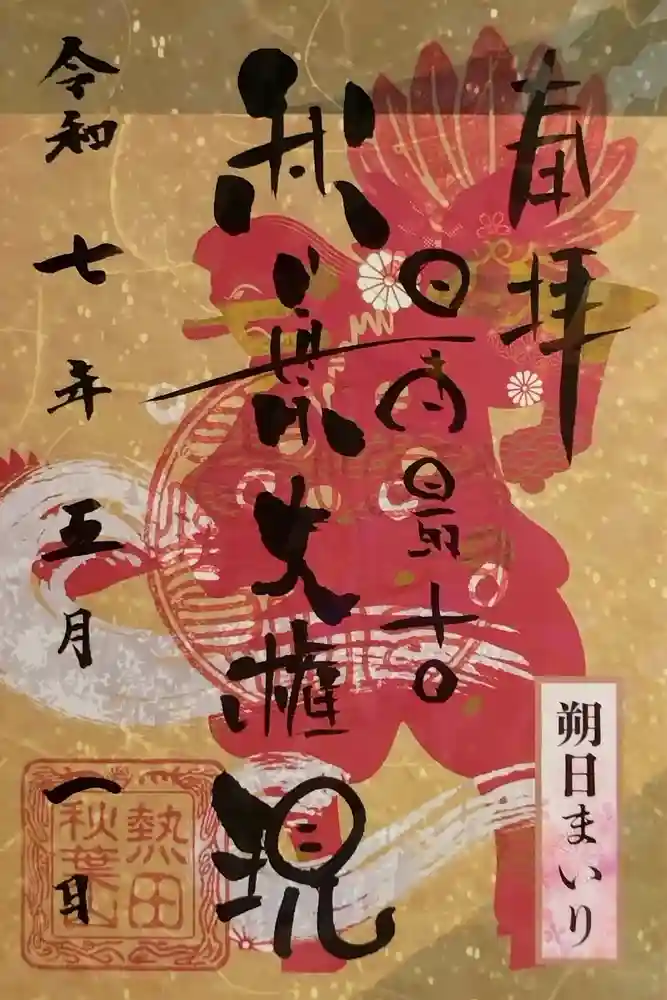 奉拝
最上最吉
秋葉大権現
令和七年五月一日
朔日まいり
熱田
秋葉山